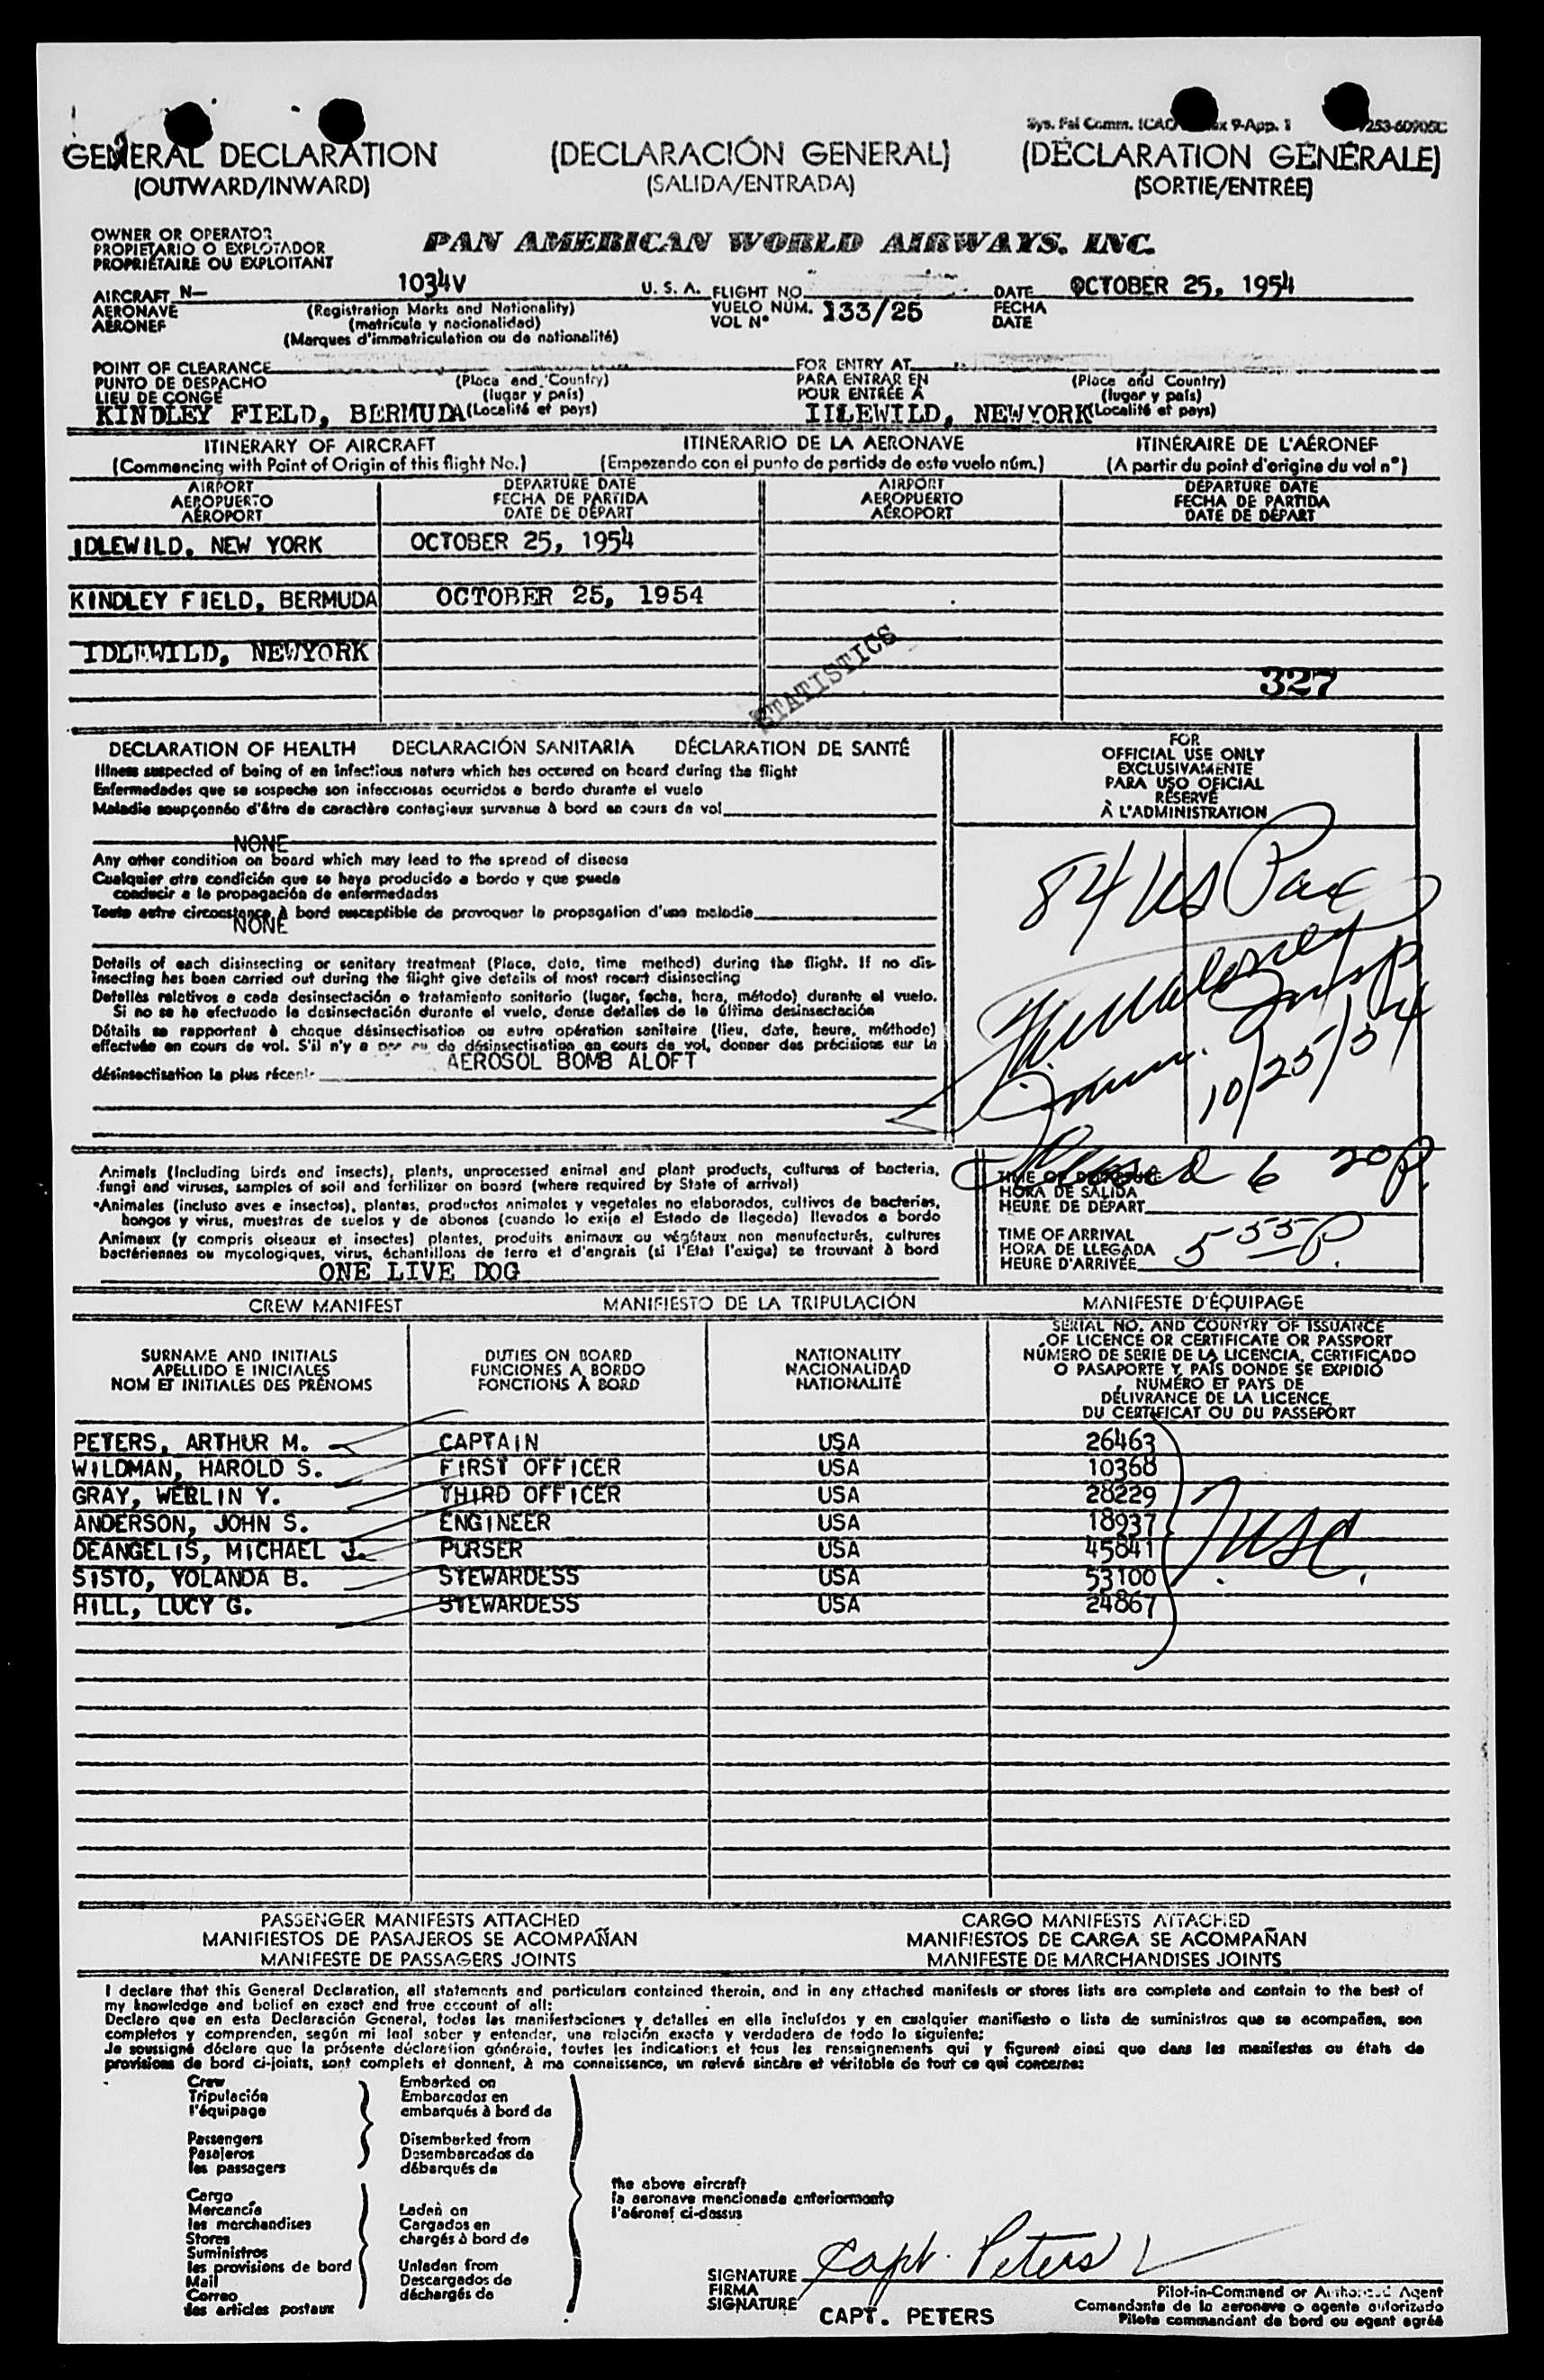 Sys. Fal Comm. ICAO x 9-App. 1 253-60905C
GENERAL DECLARATION (DECLARACIÓN GENERAL) (DÉCLARATION GÉNÉRALE)
(OUTWARD/INWARD) (SALIDA/ENTRADA) (SORTIE/ENTRÉE)
OWNER OR OPERATOR
PROPIETARIO O EXPLOTADOR
PROPRIÉTAIRE OU EXPLOITANT
PAN AMERICAN WORLD AIRWAYS, INC.
AIRCRAFT N— 1034V U. S. A. FLIGHT NO. DATE OCTOBER 25, 1954
AERONAVE (Registration Marks and Nationality) VUELO NÚM. 133/25 FECHA
AÉRONEF (matrícula y nacionalidad) VOL N° DATE
(Marques d'immatriculation ou de nationalité)
POINT OF CLEARANCE FOR ENTRY AT
PUNTO DE DESPACHO (Place and Country) PARA ENTRAR EN (Place and Country)
LIEU DE CONGÉ (lugar y país) POUR ENTRÉE À (lugar y país)
KINDLEY FIELD, BERMUDA (Localité et pays) IILEWILD, NEWYORK (Localité et pays)
ITINERARY OF AIRCRAFT ITINERARIO DE LA AERONAVE ITINÉRAIRE DE L'AÉRONEF
(Commencing with Point of Origin of this flight No.) (Empezando con el punto de partida de este vuelo núm.) (A partir du point d'origine du vol n°)
AIRPORT DEPARTURE DATE AIRPORT DEPARTURE DATE
AEROPUERTO FECHA DE PARTIDA AEROPUERTO FECHA DE PARTIDA
AÉROPORT DATE DE DÉPART AÉROPORT DATE DE DÉPART
IDLEWILD, NEW YORK OCTOBER 25, 1954
KINDLEY FIELD, BERMUDA OCTOBER 25, 1954
IDLEWILD, NEWYORK
STATISTICS
327
DECLARATION OF HEALTH DECLARACIÓN SANITARIA DÉCLARATION DE SANTÉ
Illness suspected of being of an infectious nature which has occured on board during the flight
Enfermedades que se sospeche son infecciosas ocurridas a bordo durante el vuelo
Maladie soupçonnée d'être de caractère contagieux survenue à bord en cours de vol
NONE
Any other condition on board which may lead to the spread of disease
Cualquier otra condición que se haya producido a bordo y que pueda
conducir a la propagación de enfermedades
Toute autre circonstance à bord susceptible de provoquer la propagation d'une maladie
NONE
Details of each disinsecting or sanitary treatment (Place, date, time method) during the flight. If no dis-
insecting has been carried out during the flight give details of most recent disinsecting
Detalles relativos a cada desinsectación o tratamiento sanitario (lugar, fecha, hora, método) durante el vuelo.
Si no se ha efectuado la desinsectación durante el vuelo, dense detalles de la última desinsectación
Détails se rapportant à chaque désinsectisation ou autre opération sanitaire (lieu, date, heure, méthode)
effectuée en cours de vol. S'il n'y a pas eu de désinsectisation en cours de vol, donner des précisions sur la
désinsectisation la plus récente AEROSOL BOMB ALOFT
FOR
OFFICIAL USE ONLY
EXCLUSIVAMENTE
PARA USO OFICIAL
RÉSERVÉ
À L'ADMINISTRATION
84 US Pax
Imm. Insp
10/25/54
Animals (Including birds and insects), plants, unprocessed animal and plant products, cultures of bacteria,
fungi and viruses, samples of soil and fertilizer on board (where required by State of arrival)
Animales (incluso aves e insectos), plantas, productos animales y vegetales no elaborados, cultivos de bacterias,
hongos y virus, muestras de suelos y de abonos (cuando lo exija el Estado de llegada) llevados a bordo
Animaux (y compris oiseaux et insectes) plantes, produits animaux ou végétaux non manufacturés, cultures
bactériennes ou mycologiques, virus, échantillons de terre et d'engrais (si l'État l'exige) se trouvant à bord
ONE LIVE DOG
TIME OF DEPARTURE 6 20 P.
HORA DE SALIDA
HEURE DE DÉPART
TIME OF ARRIVAL 5 55 P.
HORA DE LLEGADA
HEURE D'ARRIVÉE
CREW MANIFEST MANIFIESTO DE LA TRIPULACIÓN MANIFESTE D'ÉQUIPAGE
SURNAME AND INITIALS
APELLIDO E INICIALES
NOM ET INITIALES DES PRÉNOMS
DUTIES ON BOARD
FUNCIONES A BORDO
FONCTIONS À BORD
NATIONALITY
NACIONALIDAD
NATIONALITÉ
SERIAL NO. AND COUNTRY OF ISSUANCE
OF LICENCE OR CERTIFICATE OR PASSPORT
NÚMERO DE SERIE DE LA LICENCIA, CERTIFICADO
O PASAPORTE Y PAÍS DONDE SE EXPIDIÓ
NUMÉRO ET PAYS DE
DÉLIVRANCE DE LA LICENCE,
DU CERTIFICAT OU DU PASSEPORT
PETERS, ARTHUR M. CAPTAIN USA 26463
WILDMAN, HAROLD S. FIRST OFFICER USA 10368
GRAY, WERLIN Y. THIRD OFFICER USA 28229
ANDERSON, JOHN S. ENGINEER USA 18937
DEANGELIS, MICHAEL J. PURSER USA 45841
SISTO, YOLANDA B. STEWARDESS USA 53100
HILL, LUCY G. STEWARDESS USA 24867
PASSENGER MANIFESTS ATTACHED CARGO MANIFESTS ATTACHED
MANIFIESTOS DE PASAJEROS SE ACOMPAÑAN MANIFIESTOS DE CARGA SE ACOMPAÑAN
MANIFESTE DE PASSAGERS JOINTS MANIFESTE DE MARCHANDISES JOINTS
I declare that this General Declaration, all statements and particulars contained therein, and in any attached manifests or stores lists are complete and contain to the best of
my knowledge and belief an exact and true account of all:
Declaro que en esta Declaración General, todas las manifestaciones y detalles en ella incluídos y en cualquier manifiesto o lista de suministros que se acompañan, son
completos y comprenden, según mi leal saber y entender, una relación exacta y verdadera de todo lo siguiente:
Je soussigné déclare que la présente déclaration générale, toutes les indications et tous les renseignements qui y figurent ainsi que dans les manifestes ou états de
provisions de bord ci-joints, sont complets et donnent, à ma connaissance, un relevé sincère et véritable de tout ce qui concerne:
Crew Embarked on
Tripulación Embarcados en
l'équipage embarqués à bord de
Passengers Disembarked from
Pasajeros Desembarcados de
les passagers débarqués de
the above aircraft
la aeronave mencionada anteriormente
l'aéronef ci-dessus
Cargo
Mercancía Laden on
les marchandises Cargados en
Stores chargés à bord de
Suministros
les provisions de bord Unladen from
Mail Descargados de
Correo déchargés de
des articles postaux
SIGNATURE Capt. Peters
FIRMA
SIGNATURE CAPT. PETERS
Pilot-in-Command or Authorized Agent
Comandante de la aeronave o agente autorizado
Pilote commandant de bord ou agent agréé